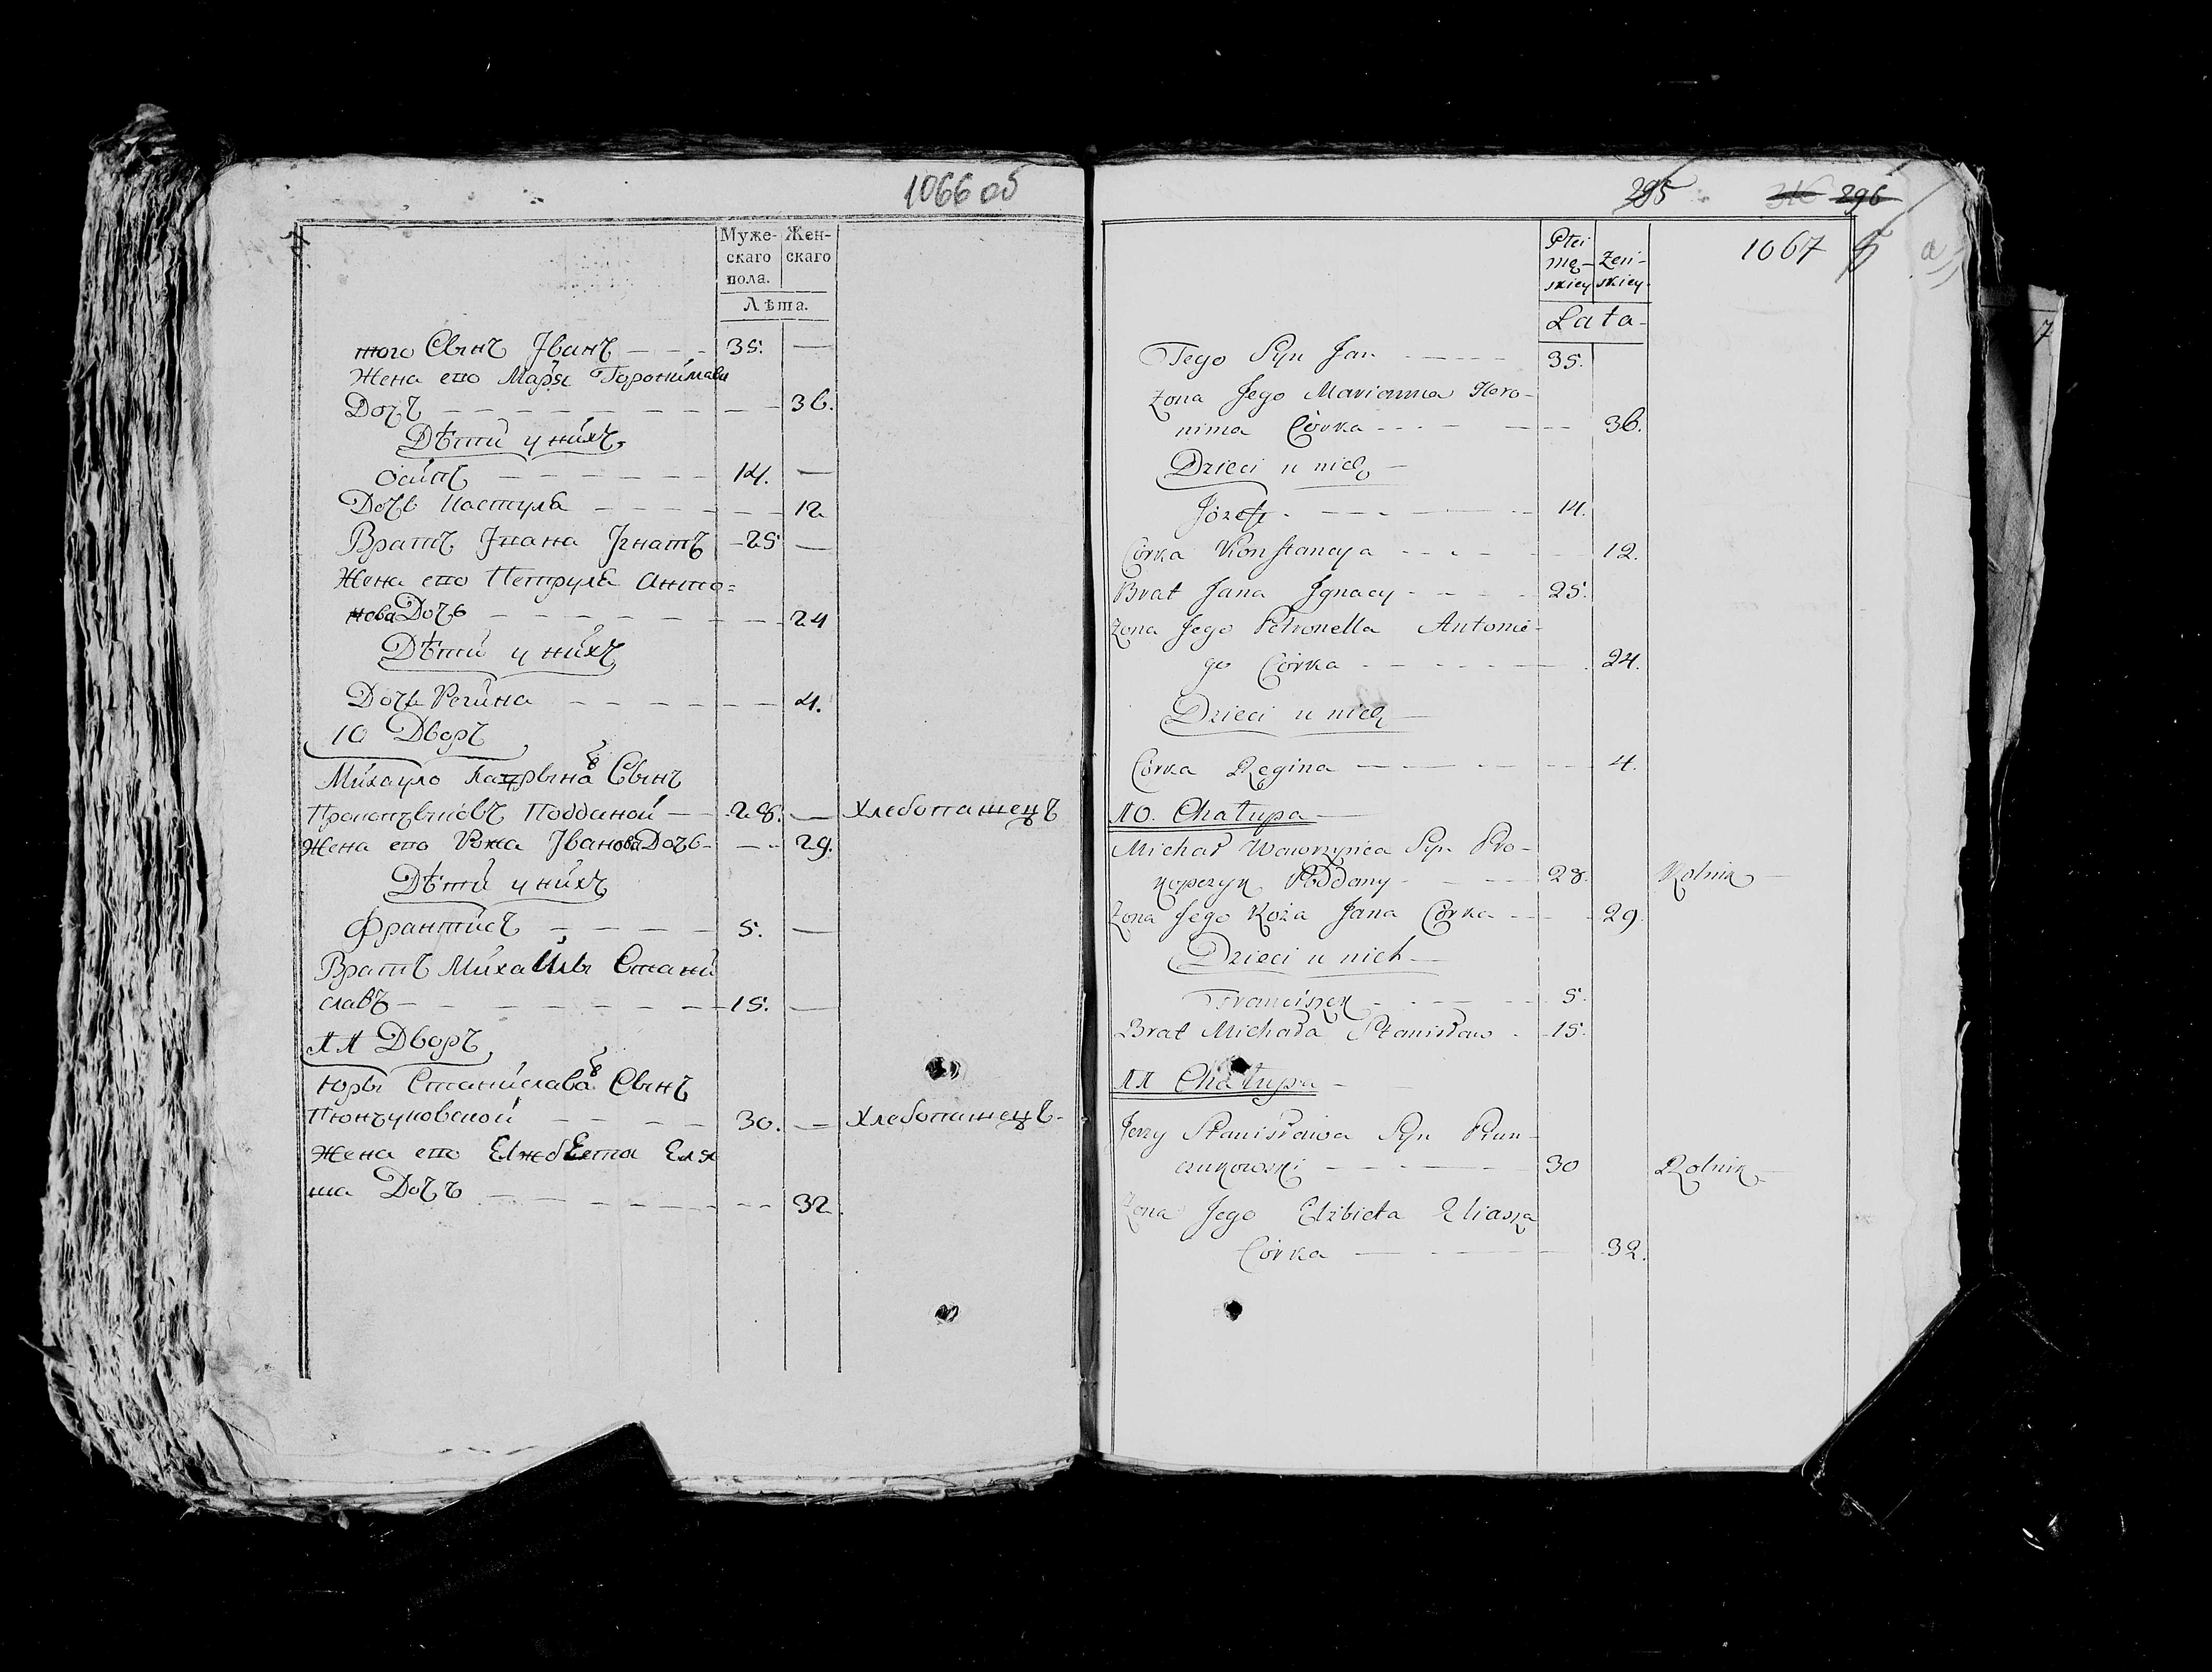 1066 об
Муже-
скаго
пола.
Жен-
скаго
Лѣта.
того Сынъ Іванъ — — - 35. —
Жена его Марья Геронимава
Дочъ — — — — — 36.
Дѣти у нихъ
Осипъ — — — — — 14. —
Дочь Настуля — — — — — 12
Братъ Івана Ігнатъ - 25 —
Жена его Петруля Анто=
нова Дочь — — — — — 24
Дѣти у нихъ
Дочь Регина — — — — — 4.
10 Дворъ
Михауло Лаврына въ Сынъ
Подданой — 28. — Хлебопашецъ
Жена его Рожа Іванова Дочь - — - 29.
Дѣти у нихъ
Францись — — — — 5. —
Братъ Михайлы Стани
славъ — — — — — 15. —
11 Дворъ
Юры Станислава въ Сынъ
Пюнчуковской — — — 30. — Хлебопашецъ -
Жена его Елжбета Еля
ша Дочъ — — — — 32.
295 316 296
1067
Płci
mę-
skiey
żeń-
skiey
Lata
Tego Syn Jan - — - - - 35.
Żona Jego Marianna Hero-
nima Córka - - - — — - 36.
Dzieci u nich —
Józef - — - — — 14.
Córka Konstancya - - - — — 12.
Brat Jana Ignacy - - - - 25.
Żona Jego Petronella Antonie-
go Córka — - — - — 24.
Dzieci u nich —
Córka Regina — — — — 4.
10. Chałupa —
Michał Wawrzyńca Syn Pro-
kopczyk Poddany - — - — 28. Rolnik —
Żona Jego Roża Jana Córka - - - 29.
Dzieci u nich —
Franciszek - - — - 5.
Brat Michała Stanisław - 15.
11 Chałupa —
Jerzy Stanisława Syn Piun-
czukowski — — — 30 Rolnik —
Żona Jego Elżbieta Eliasza
Córka — - — — 32.